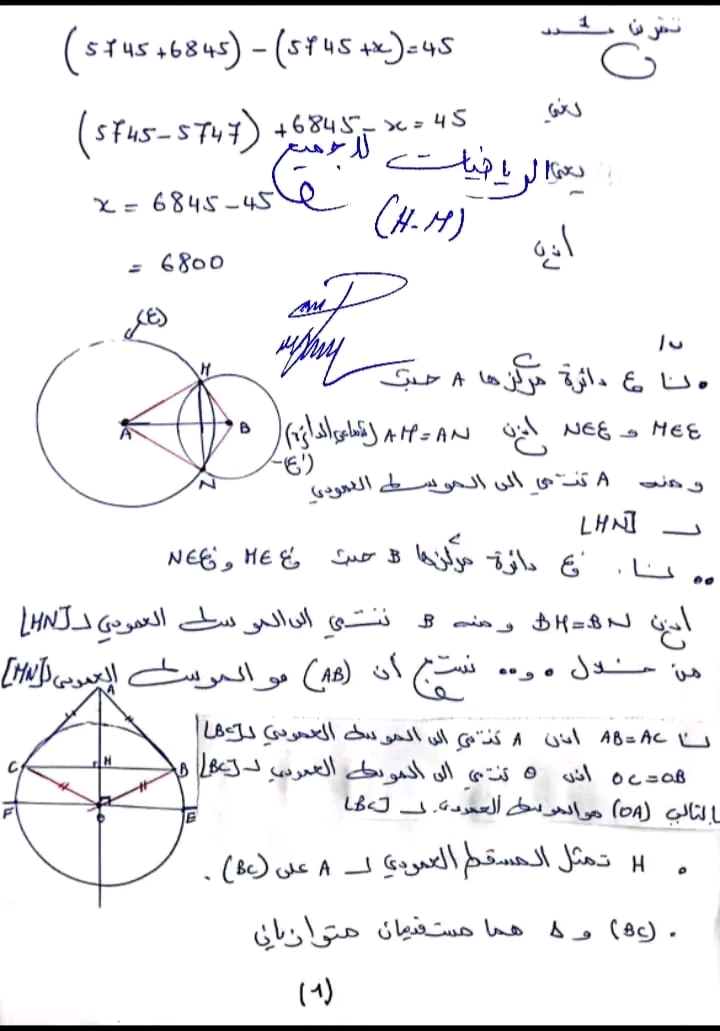 تمرين عـــدد 1
(5745+6845)-(5745+x)=45
يعني
(5745-5747)+6845-x=45
يعني
x = 6845-45
الرياضيات للجميع
(H-M)
اذن
= 6800
(ع)
H
A
B
N
(ع')
• لنا ع دائرة مركزها A حيث
M∈ع و N∈ع اذن AM=AN (شعاعي الدائرة)
و منه A تنتمي الى الموسط العمودي
لـ [HN]
•• لنا ع' دائرة مركزها B حيث M∈ع' و N∈ع'
اذن BH=BN و منه B تنتمي الى الموسط العمودي لـ [HN]
من خلال • و •• نستنتج أن (AB) هو الموسط العمودي لـ [MN]
A
C
H
B
F
O
E
لنا AB=AC اذن A تنتمي الى الموسط العمودي لـ [BC]
OC=OB اذن O تنتمي الى الموسط العمودي لـ [BC]
بالتالي (OA) هو الموسط العمودي لـ [BC]
• H تمثل المسقط العمودي لـ A على (BC).
• (BC) و Δ هما مستقيمان متوازيان
(1)